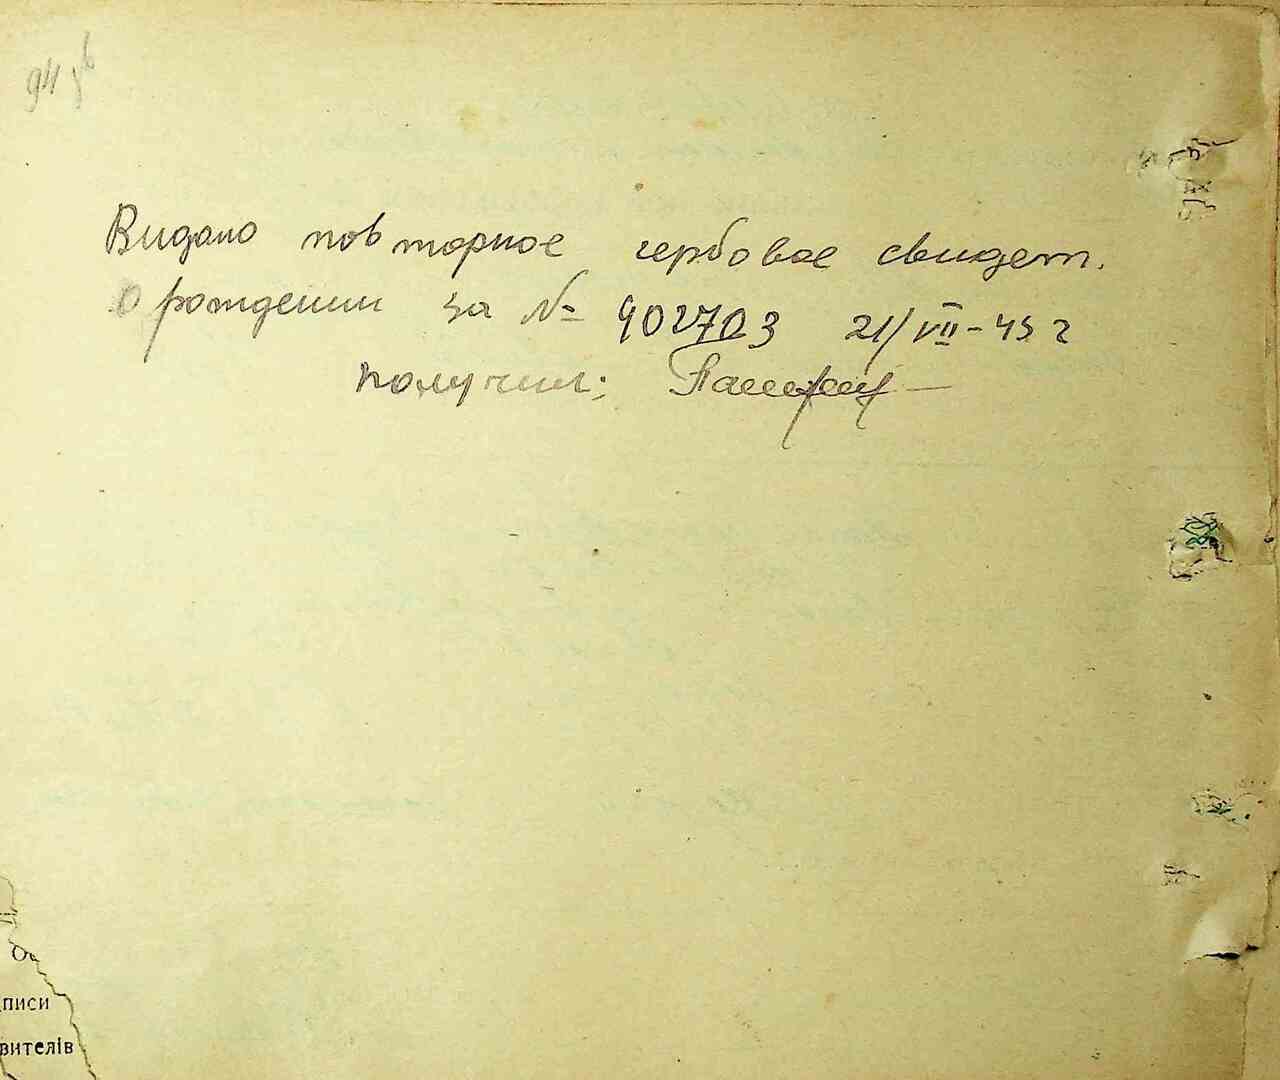 94
Видано повторное гербовое свидет.
о рождении за № 902703 21/VII-45 г
получил:
писи
вителів